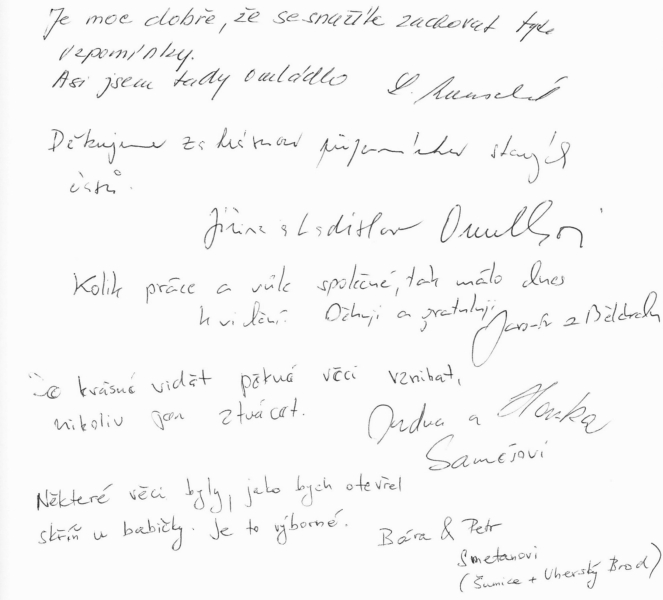 Je moc dobře, že se snažíte zachovat tyto
vzpomínky.
Asi jsem tady omládlo
Děkujeme za krásnou připomínku starých
časů.
Jiřina a Ladislav
Kolik práce a vůle společné, tak málo dnes
k vidění. Děkuji a gratuluji.
Je krásné vidět pěkné věci vznikat,
nikoliv jen ztrácat.
Ondra a Hanka
Samešovi
Některé věci byly, jako bych otevřel
skříň u babičky. Je to výborné.
Bára & Petr
Smetanovi
(Šumice + Uherský Brod)